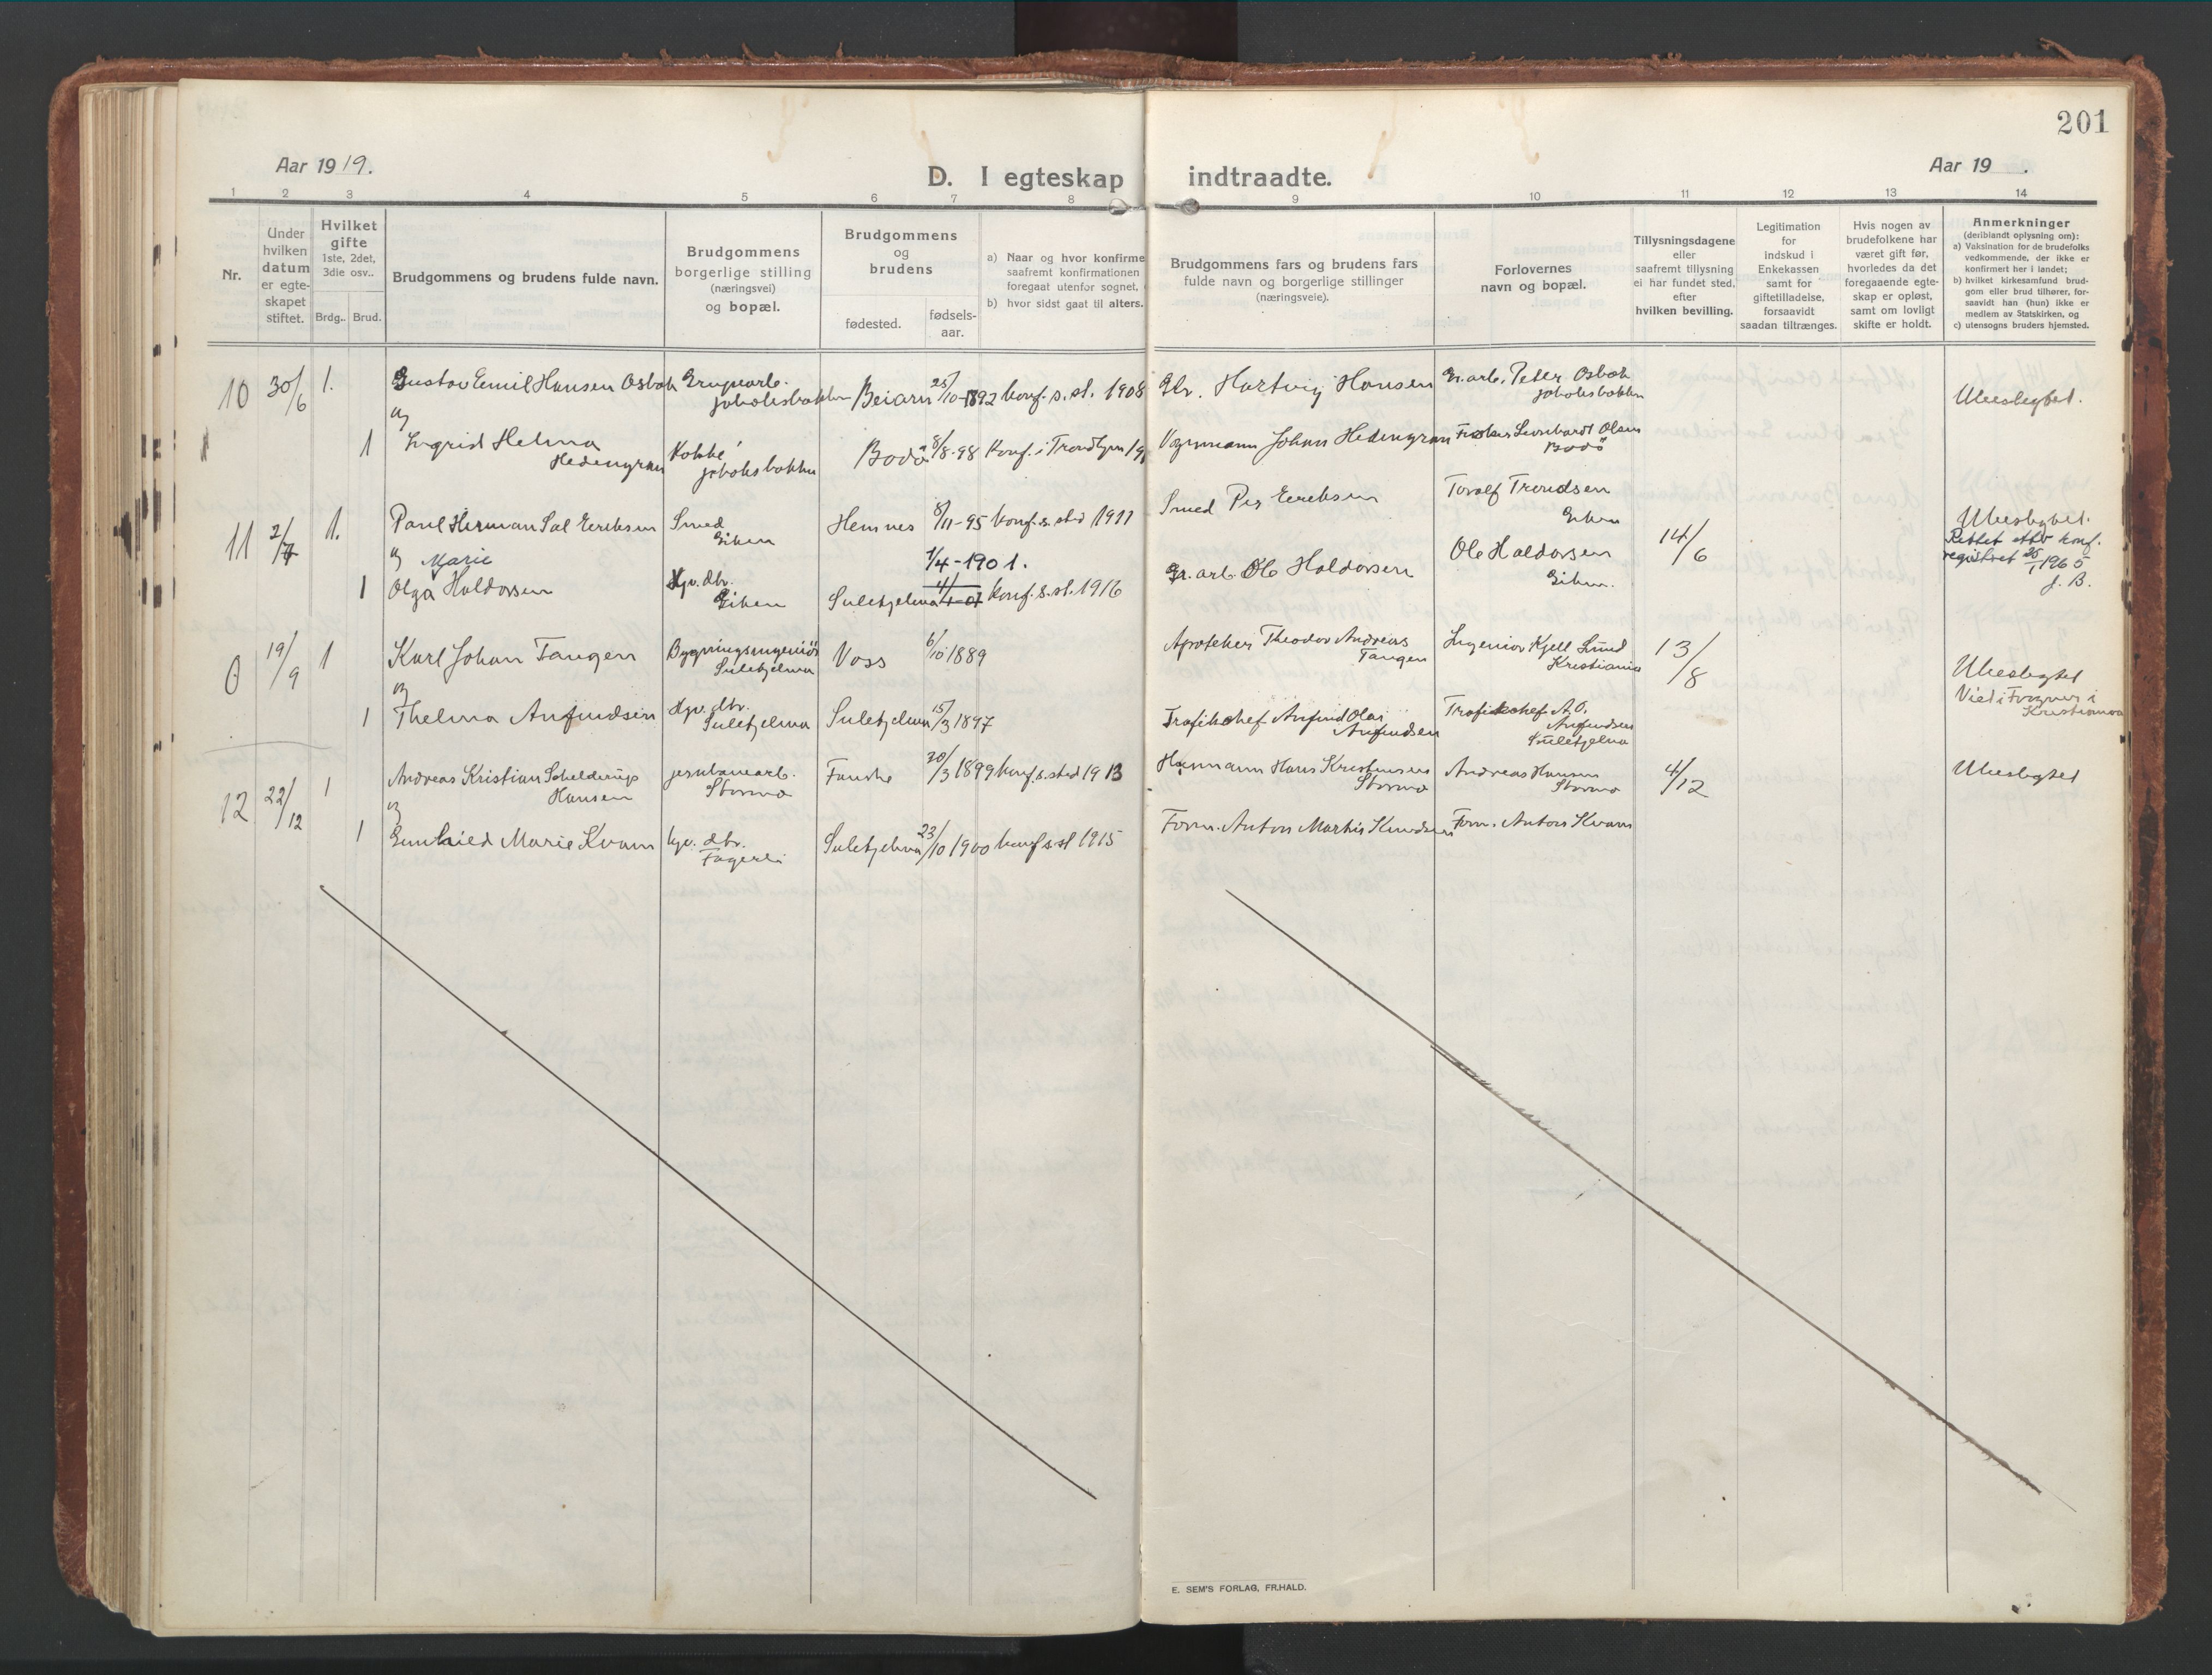 201
Aar 1919.
D. I egteskap indtraadte.
Aar 19 .
1 2 3 4 5 6 7 8 9 10 11 12 13 14
Nr.
Under
hvilken
datum
er egte-
skapet
stiftet.
Hvilket
gifte
1ste, 2det,
3die osv..
Brdg.. Brud.
Brudgommens og brudens fulde navn.
Brudgommens
borgerlige stilling
(næringsvei)
og bopæl.
Brudgommens
og
brudens
fødested.
fødsels-
aar.
a) Naar og hvor konfirme
saafremt konfirmationen
foregaat utenfor sognet,
b) hvor sidst gaat til alters.
Brudgommens fars og brudens fars
fulde navn og borgerlige stillinger
(næringsveie).
Forlovernes
navn og bopæl.
Tillysningsdagene
eller
saafremt tillysning
ei har fundet sted,
efter
hvilken bevilling.
Legitimation
for
Indskud i
Enkekassen
samt for
giftetilladelse,
forsaavidt
saadan tiltrænges.
Hvis nogen av
brudefolkene har
været gift før,
hvorledes da det
foregaaende egte-
skap er opløst,
samt om lovligt
skifte er holdt.
Anmerkninger
(deriblandt oplysning om):
a) Vaksination for de brudefolks
vedkommende, der ikke er
konfirmert her i landet;
b) hvilket kirkesamfund brud-
gom eller brud tilhører, for-
saavidt han (hun) ikke er
medlem av Statskirken, og
c) utensogns bruders hjemsted.
10 30/6 1. Gustav Emil Hansen Osbak Grupearb. Beiarn 25/10-1892 konf. s. st. 1908 Hartvig Hansen Gr. arb. Peter Osbak Ubeslegtet.
jakobsbakken jakobsbakken
og
1 Ingrid Helma Kokke Bodö 8/8-98 Konf. i Trondhjem Vognmann Johan Hedengran Fisker Leonhardt Olsen
Hedengran jakobsbakken Bodö
11 2/7 1. Paul Herman Sal Eeriksen Smed Hemnes 8/11-95 konf. s. sted 1911 Smed Per Eeriksen Toralf Trondsen 14/6 Ubeslegtet.
Giken Giken
Rettet etter konf.
registret 25/1 1965
J. B.
og Marie 1/4-1901.
1 Olga Haldorsen Hjv. dtr. Sulitjelma konf. s. st. 1916 Gr. arb. Ole Haldorsen Ole Haldorsen
Giken Giken.
0 19/9 1 Karl Johan Tangen Bygningsingeniör Voss 6/10 1889 Apotheker Theodor Andreas Ingeniør Kjell Lund 13/8 Ubeslegtet
Sulitjelma Tangen Kristiania
Viet i Frogner i
Kristiania
og
1 Thelma Anfindsen Hjv. dtr. Sulitjelma 15/3 1897 Trafikchef Anfind Olai Trafikchef A. O.
Sulitjelma Anfindsen Anfindsen
Sulitjelma
12 22/12 1 Andreas Kristian Schelderup jernbanearb. Fauske 20/3 1899 konf. s. sted 1913 Hans Kristensen Andreas Hansen 4/12 Ubeslegtet
Hansen Stormo Stormo Stormo
og
1 Marie Kvam hjv. dtr. Sulitjelma 23/10 1900 konf s. st 1915 Form. Anton Martin Knudsen Form. Anton Kvam
Fagerli
E. SEM'S FORLAG, FR.HALD.